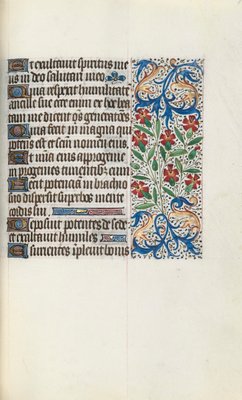 Et exultavit spiritus me
us in deo salutari meo.
Quia respexit humilitatē
ancille sue ecce enim ex hoc bea
tam me dicent oēs generacōes
Quia fecit in magna qui
potens est et scm̄ nomen eius.
Et mīa eius a progenie
in progenies timentibz eum
Fecit potenciam in brachio
suo dispersit superbos mente
cordis sui
Deposuit potentes de sede
et exaltavit humiles
Esurientes īplevit bonis